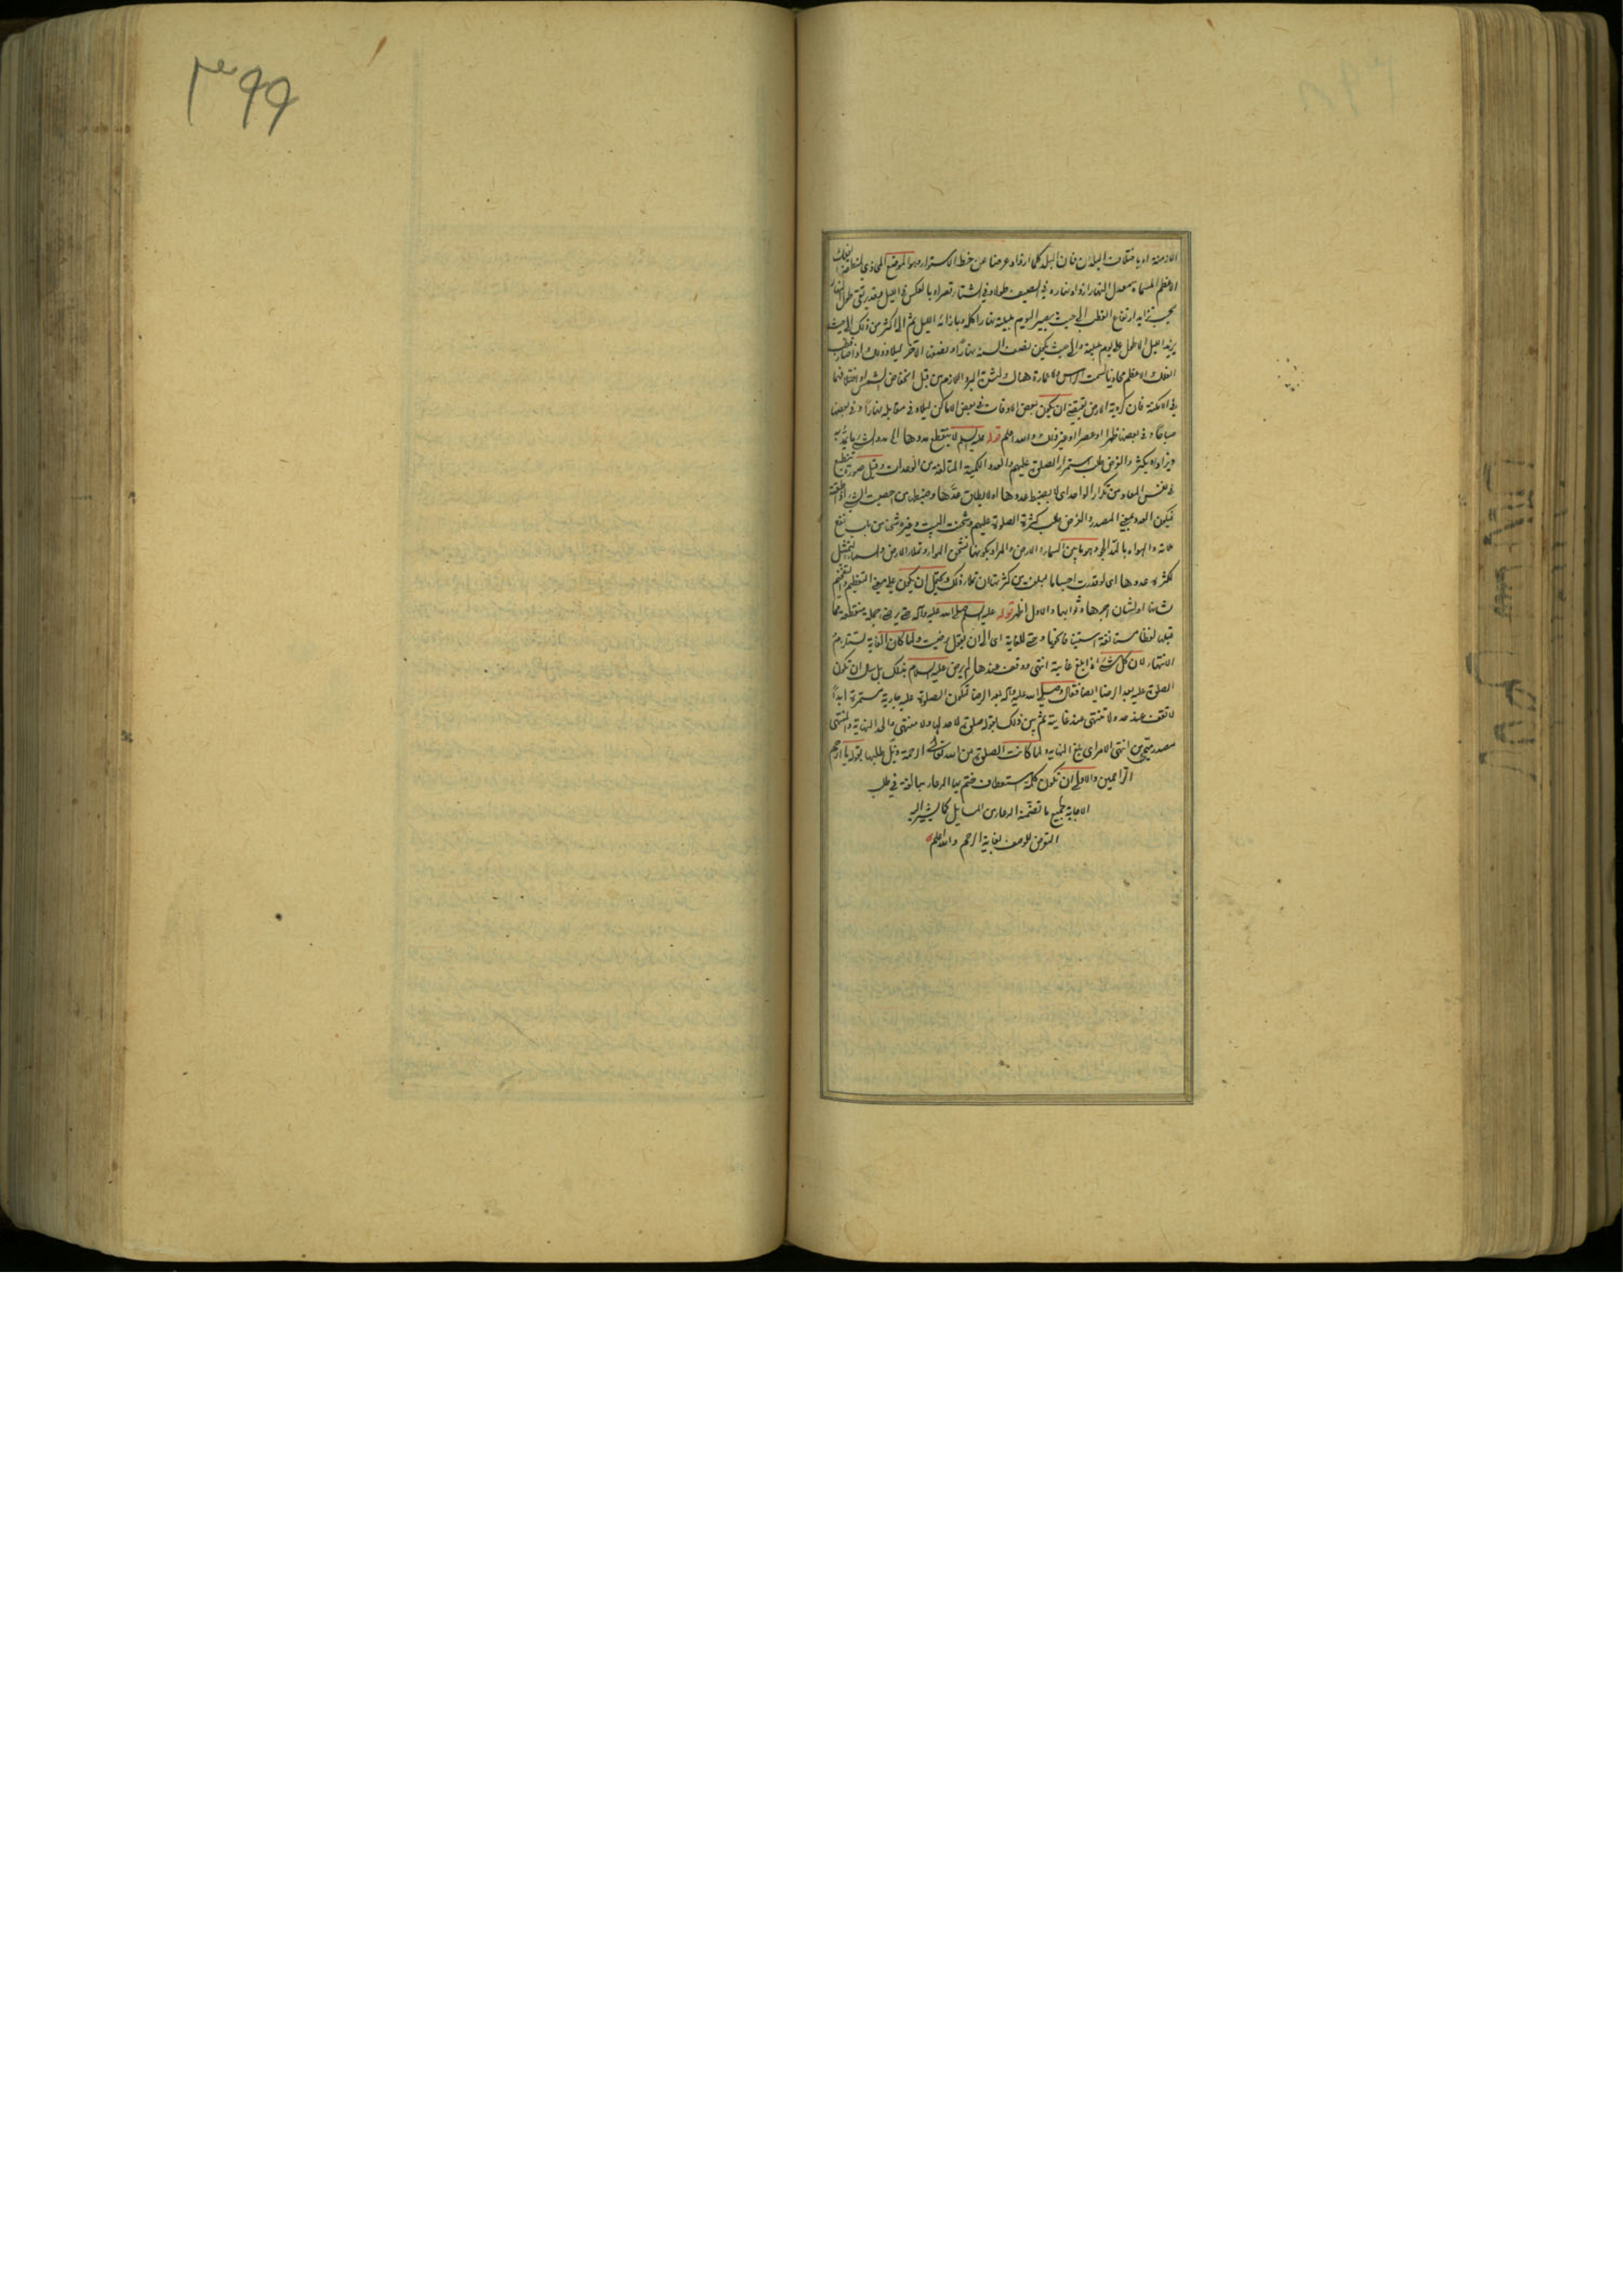 الازمنة او باختلاف البلدان فان البلد كلما ازداد عرضا عن خط الاستواء وهو الموضع المحاذي لمنطقة الفلك
الاعظم المسماة بمعدل النهار ازداد نهاره في الصيف طولا وفي الشتاء قصرا وبالعكس في الليل فبقدر يبقى طول النهار
بحسب تزايد ارتفاع القطب الى حيث يصير اليوم بليلته نهارا كله وبازائه الليل ثم الى اكثر من ذلك الى حيث
يزيد الليل الاطول على يوم بليلته والى حيث يكون نصف السنة نهارا ونصف الآخر ليلا وذلك اذا صار قطب
الفلك الاعظم محاذيا لسمت الراس ولا عمارة هناك لشدة البرد اللازم من قبل انخفاض الشمس واختلافها
في الامكنة فان كروية الارض تقتضي ان يكون بعض الاوقات في بعض الاماكن ليلا وفي مقابله نهارا وفي بعضها
صباحا وفي بعضها ظهرا او عصرا او غير ذلك والله اعلم قوله عليه السلم لا ينقطع مددها المدد الشيء ما يمد به
ويزاد ويكثر والغرض طلب استمرار الصلوة عليهم والعدد الكمية المتألفة من الوحدات وقيل صورة تنطبع
في نفس العاد من تكرار الواحد اي لا ينضبط عددها او لا يطاق عدها وضبطه من احصيت الشيء اذا اطقته
فيكون العدد بمعنى المصدر والغرض طلب كثرة الصلوة عليهم وشحنت البيت وغيره شحنا من باب نفع
ملاته والهواء بالمد الجو وهو ما بين السماء والارض والمراد بكونها تشحن الهواء وتملا الارض والسماء التمثيل
لكثرة عددها اي لو قدرت اجساما لبلغت من كثرتها ان تملا ذلك ويحتمل ان يكون على معنى التعظيم والتفخيم
لشانها او لشان اجرها وثوابها والاول اظهر قوله عليه السلم صلى الله عليه وآله حتى يرضى جملة منقطعة عما
قبلها لفظا مستانفة استينافا نحويا وحتى للغاية اي الى ان يقول رضيت ولما كان الغاية تستلزم
الانتهاء لان كل شيء اذا بلغ غايته انتهى ووقف عندها لم يرض عليه السلام بذلك بل سال ان تكون
الصلوة عليه بعد الرضا ايضا فقال وصلى الله عليه وآله بعد الرضا لتكون الصلوة عليه جارية مستمرة ابدا
لا تقف عند حد ولا تنتهي عند غاية ثم بين ذلك بقوله صلوة لا حد لها ولا منتهى والحد النهاية والمنتهى
مصدر ميمي من انتهى الامر اي بلغ النهاية ولما كانت الصلوة من الله تعالى الرحمة ذيل طلبها بقوله يا ارحم
الراحمين والاولى ان تكون كلمة استعطاف ختم بها الدعاء مبالغة في طلب
الاجابة لجميع ما تضمنه الدعاء من المسايل كما يشير اليه
التعرض لوصف غاية الرحم والله اعلم
٣٩٩